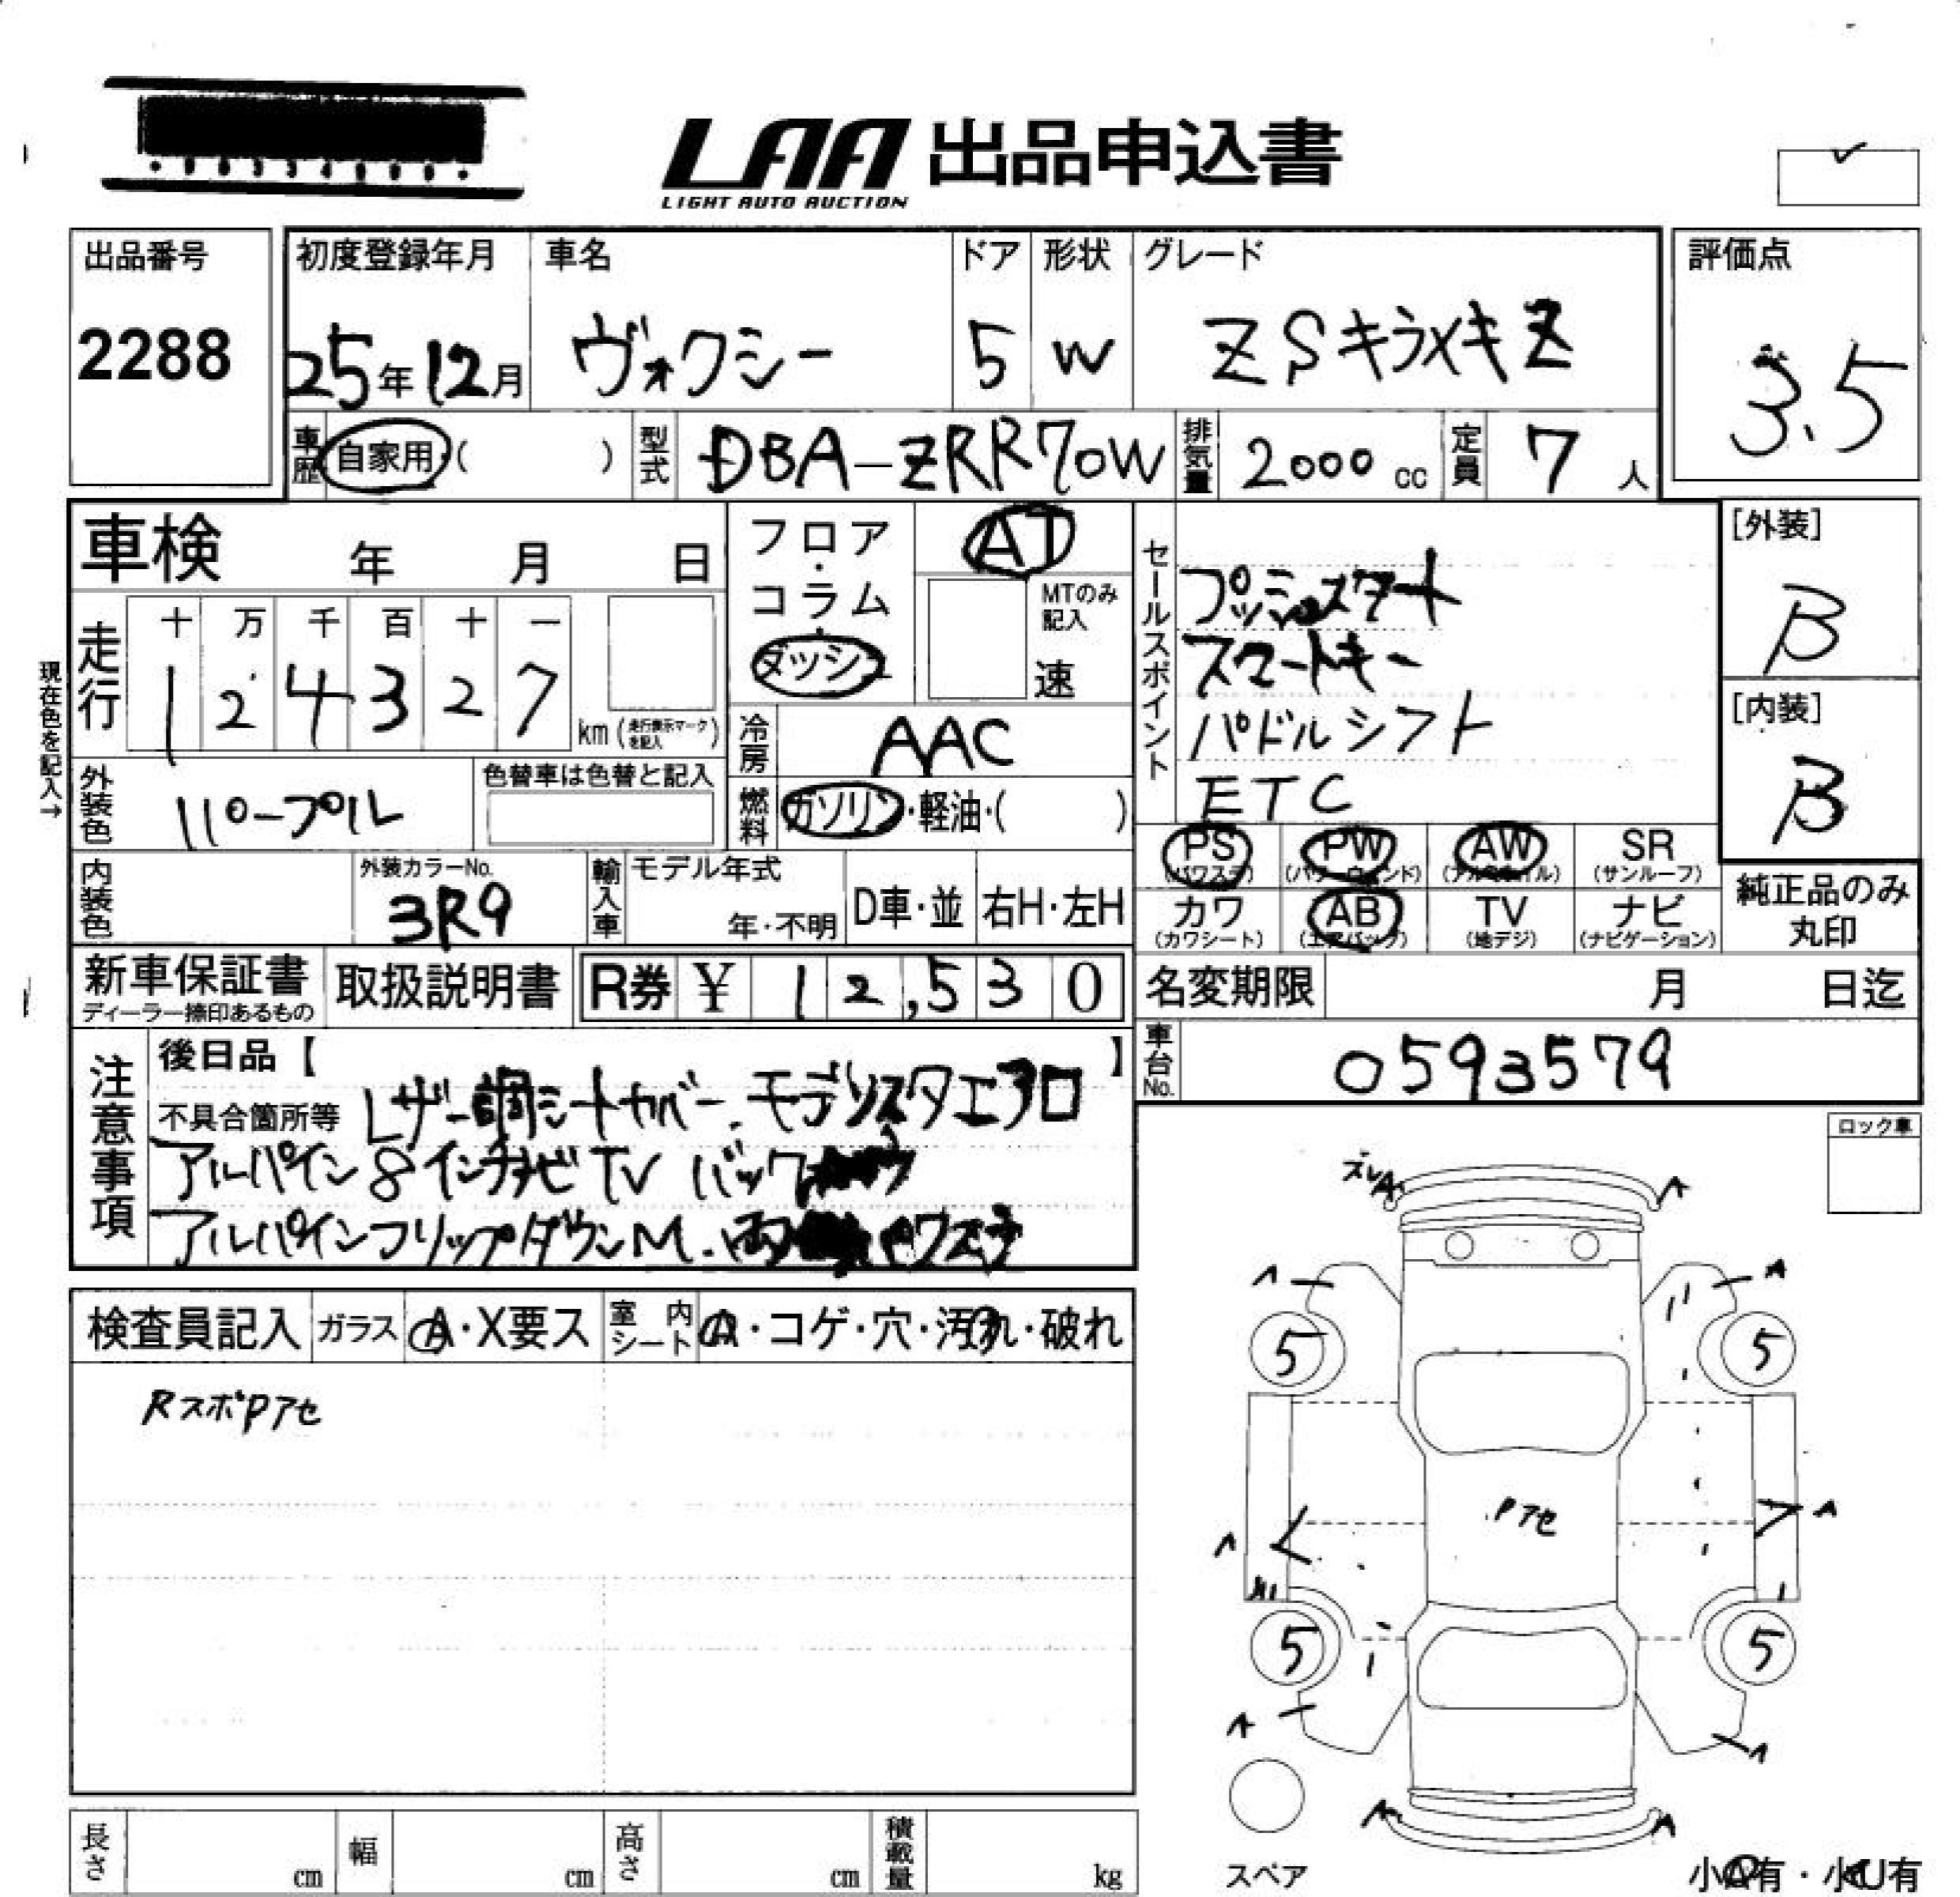 LAA 出品申込書
LIGHT AUTO AUCTION
出品番号 初度登録年月 車名 ドア 形状 グレード 評価点
2288 25年12月 ヴォクシー 5 W ZSキラメキZ 3.5
車歴 自家用・( ) 型式 DBA-ZRR70W 排気量 2000cc 定員 7人
車検 年 月 日
フロア・コラム・ダッシュ
AT
MTのみ記入
速
セールスポイント
プッシュスタート
スマートキー
パドルシフト
ETC
[外装]
B
[内装]
B
現在色を記入→
走行 十 万 千 百 十 一
1 2 4 3 2 7 km(走行表示マークを記入)
冷房 AAC
外装色 パープル 色替車は色替と記入
燃料 ガソリン・軽油・( )
PS AW SR
PW
(パワステ) (パワーウィンド) (アルミホイル) (サンルーフ)
内装色 外装カラーNo. 3R9 輸入車 モデル年式 年・不明 D車・並 右H・左H
カワ AB TV ナビ
(カワシート) (エアバッグ) (地デジ) (ナビゲーション)
純正品のみ
丸印
新車保証書 取扱説明書 R券 ¥ 12,530
ディーラー捺印あるもの
名変期限 月 日迄
車台No. 0593579
注意事項
後日品【 】
不具合箇所等 レザー調シートカバー.モデリスタエアロ
アルパイン8インチナビTV バック
アルパインフリップダウンM.両 パワスラ
ロック車
検査員記入 ガラス A・X要ス 室内シート A・コゲ・穴・汚れ・破れ
RスポPアセ
ズレA A
A A
5 5
Pアセ
A A
5 5
A A
A A
スペア
小A有・小U有
長さ cm 幅 cm 高さ cm 積載量 kg